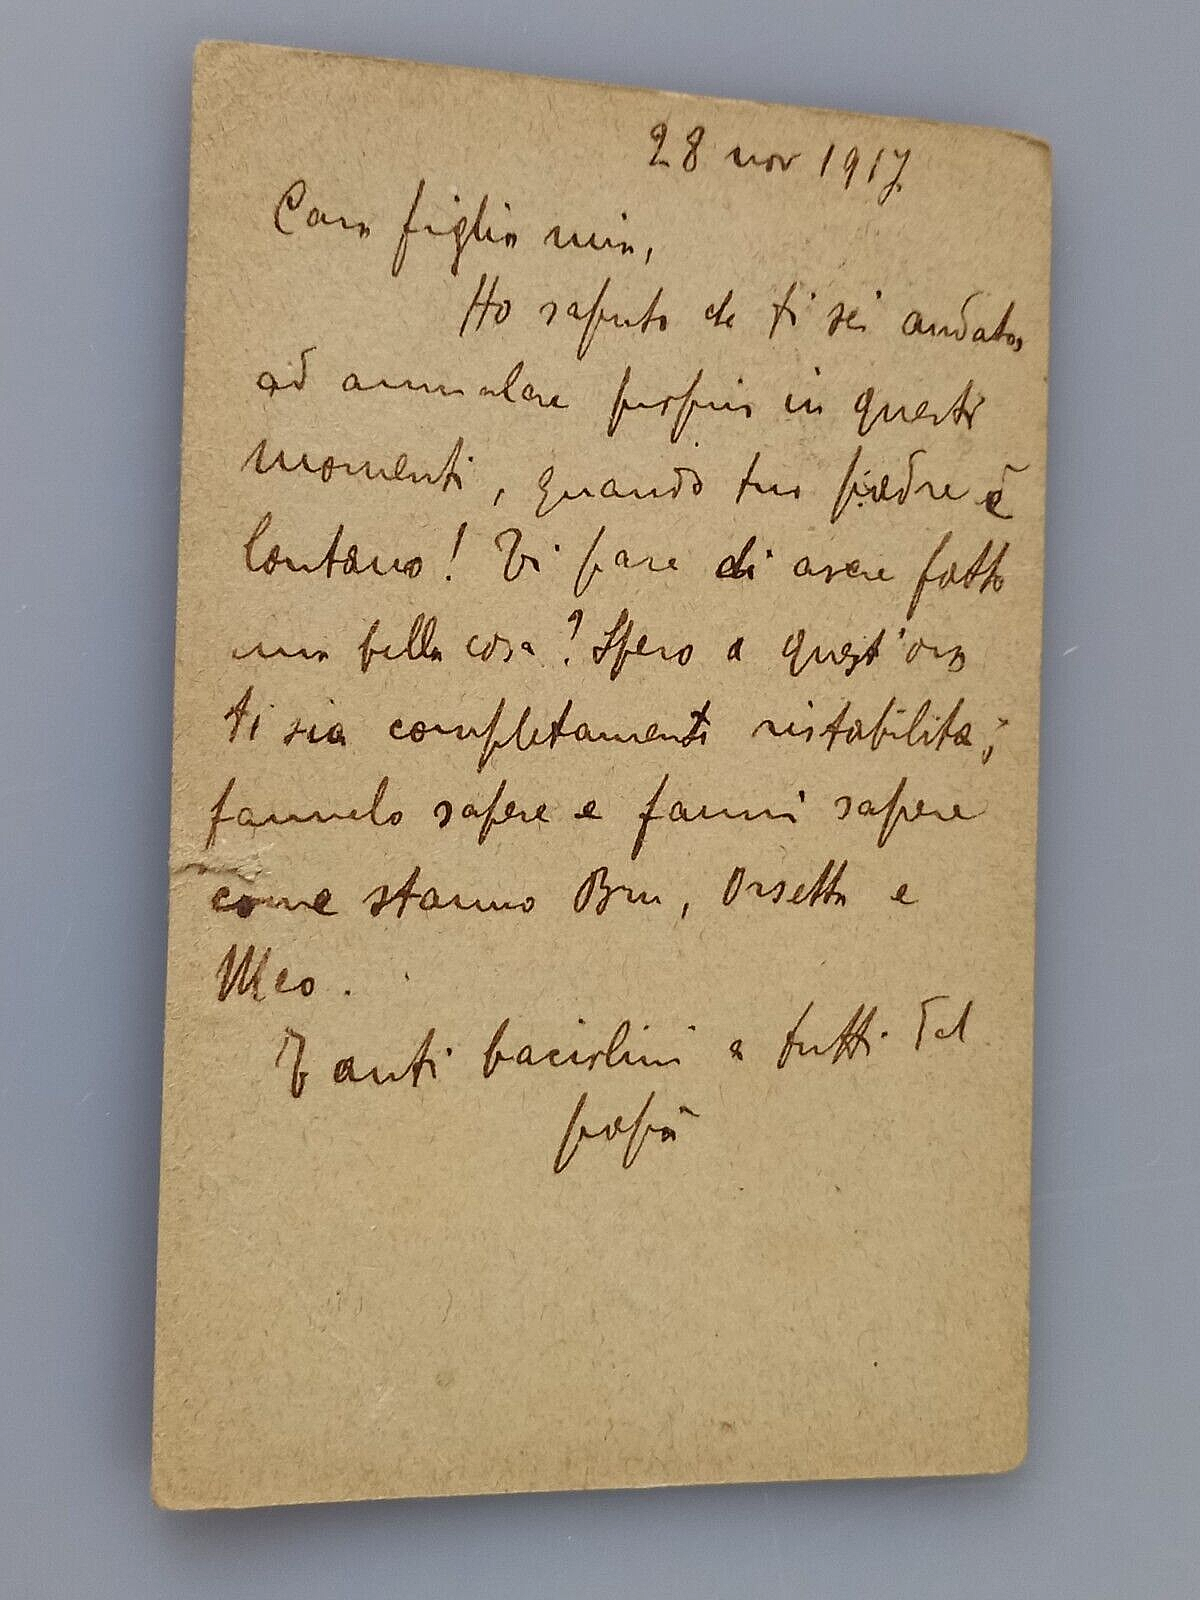 28 nov 1917
Cara figlia mia,
Ho saputo che ti sei andata
ad ammalare proprio in questi
momenti, quando tuo padre è
lontano! Ti pare di avere fatto
una bella cosa? Spero a quest'ora
ti sia completamente ristabilita;
fammelo sapere e fammi sapere
come stanno Bru, Orsetta e
Meo.
Tanti baciolini a tutti dal
papà